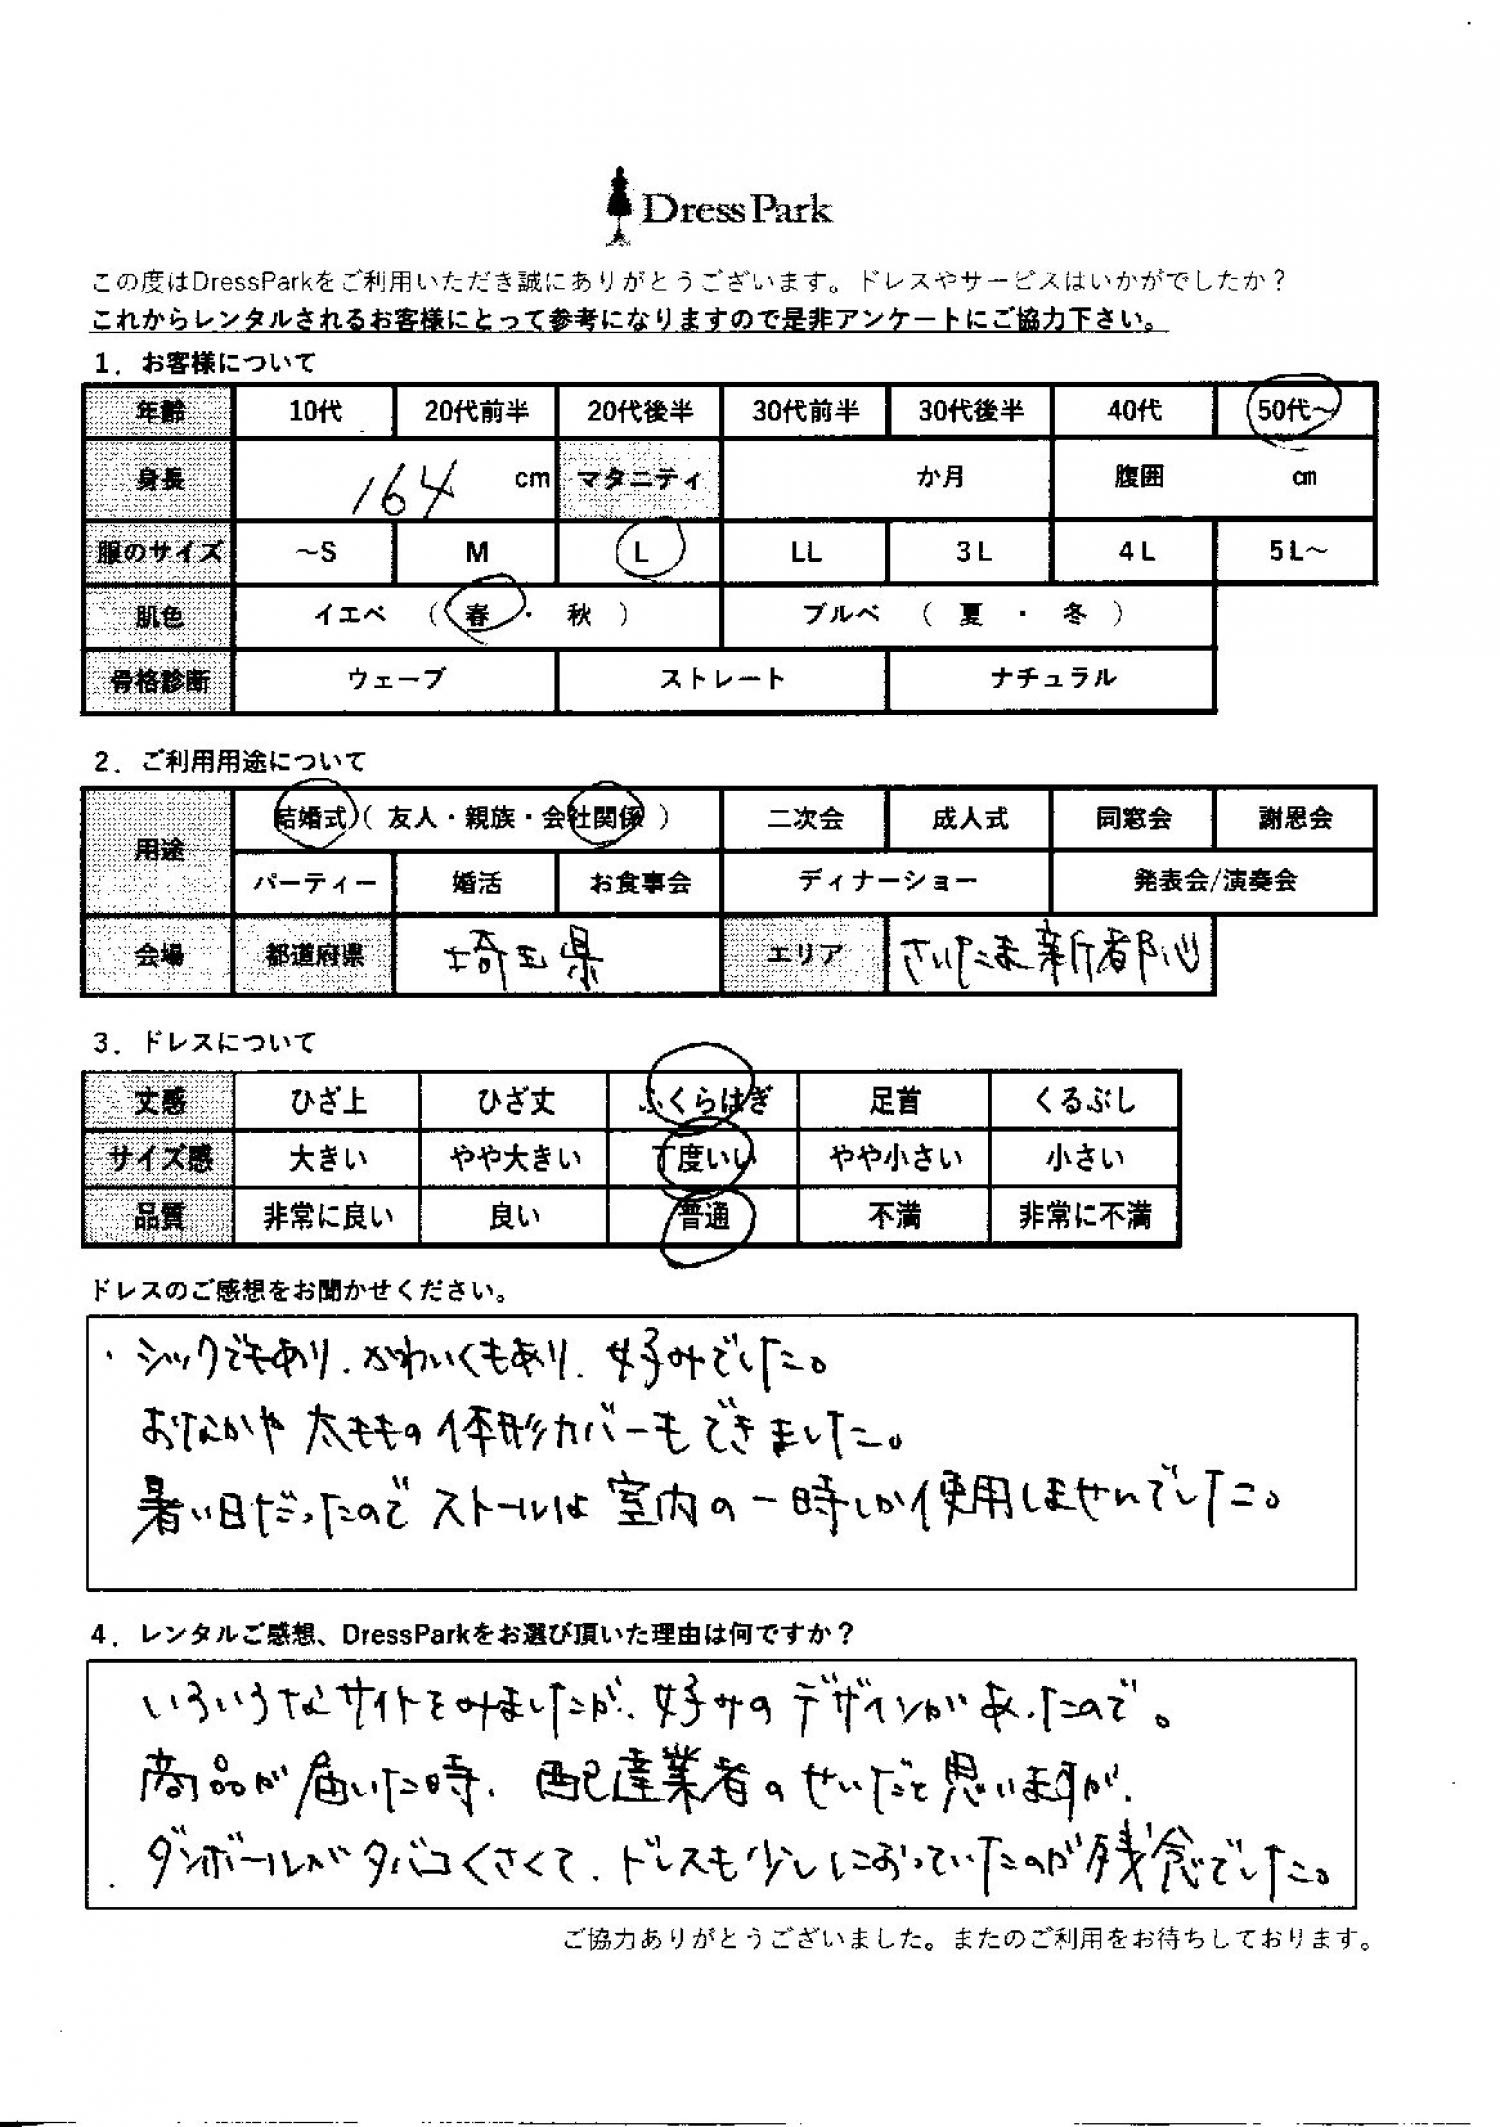 DressPark
この度はDressParkをご利用いただき誠にありがとうございます。ドレスやサービスはいかがでしたか？
これからレンタルされるお客様にとって参考になりますので是非アンケートにご協力下さい。
1．お客様について
年齢 10代 20代前半 20代後半 30代前半 30代後半 40代 50代～
身長 164 cm マタニティ か月 腹囲 cm
服のサイズ ～S M L LL 3L 4L 5L～
肌色 イエベ （ 春 ・ 秋 ） ブルベ （ 夏 ・ 冬 ）
骨格診断 ウェーブ ストレート ナチュラル
2．ご利用用途について
用途 結婚式（ 友人・親族・会社関係 ） 二次会 成人式 同窓会 謝恩会
パーティー 婚活 お食事会 ディナーショー 発表会/演奏会
会場 都道府県 埼玉県 エリア さいたま新都心
3．ドレスについて
丈感 ひざ上 ひざ丈 ふくらはぎ 足首 くるぶし
サイズ感 大きい やや大きい 丁度いい やや小さい 小さい
品質 非常に良い 良い 普通 不満 非常に不満
ドレスのご感想をお聞かせください。
・シックでもあり、かわいくもあり、好みでした。
おなかや太ももの体形カバーもできました。
暑い日だったのでストールは室内の一時しか使用しませんでした。
4．レンタルご感想、DressParkをお選び頂いた理由は何ですか？
いろいろなサイトをみましたが、好みのデザインがあったので。
商品が届いた時、配達業者のせいだと思いますが、
ダンボールがタバコくさくて、ドレスも少しにおっていたのが残念でした。
ご協力ありがとうございました。またのご利用をお待ちしております。